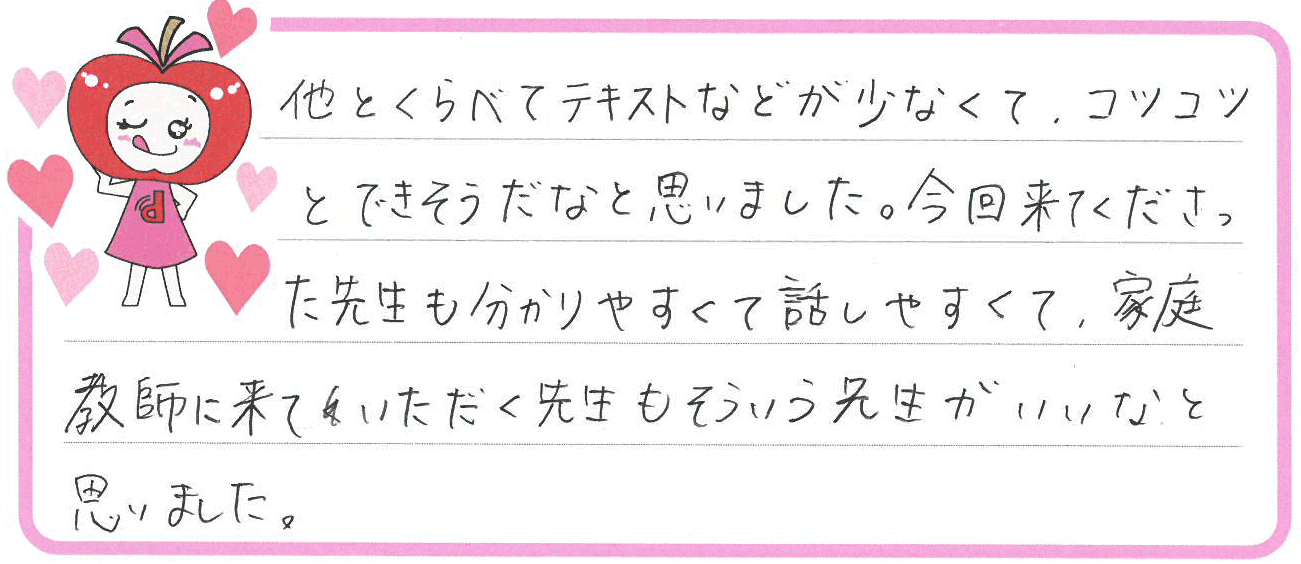 他とくらべてテキストなどが少なくて、コツコツ
とできそうだなと思いました。今回来てくださっ
た先生も分かりやすくて話しやすくて、家庭
教師に来ていただく先生もそういう先生がいいなと
思いました。
d